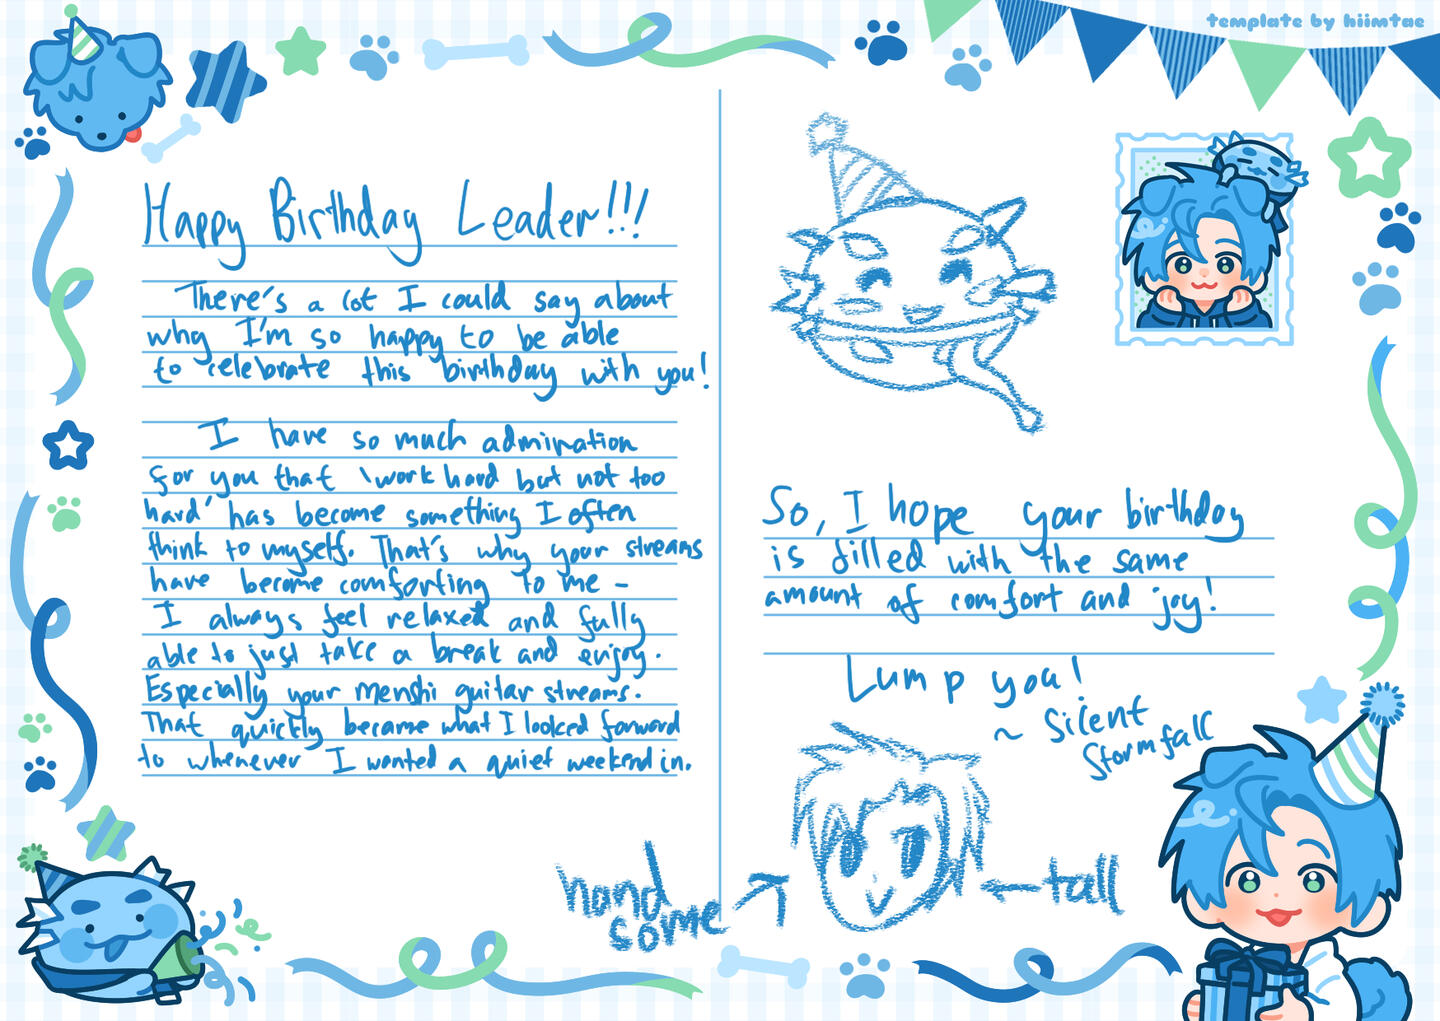 template by hiimtae
Happy Birthday Leader!!!
There's a lot I could say about
why I'm so happy to be able
to celebrate this birthday with you!
I have so much admiration
for you that 'work hard but not too
hard' has become something I often
think to myself. That's why your streams
have become comforting to me -
I always feel relaxed and fully
able to just take a break and enjoy.
Especially your menshi guitar streams.
That quickly became what I looked forward
to whenever I wanted a quiet weekend in.
So, I hope your birthday
is filled with the same
amount of comfort and joy!
Lump you!
~ Silent
Stormfall
hand
some
tall